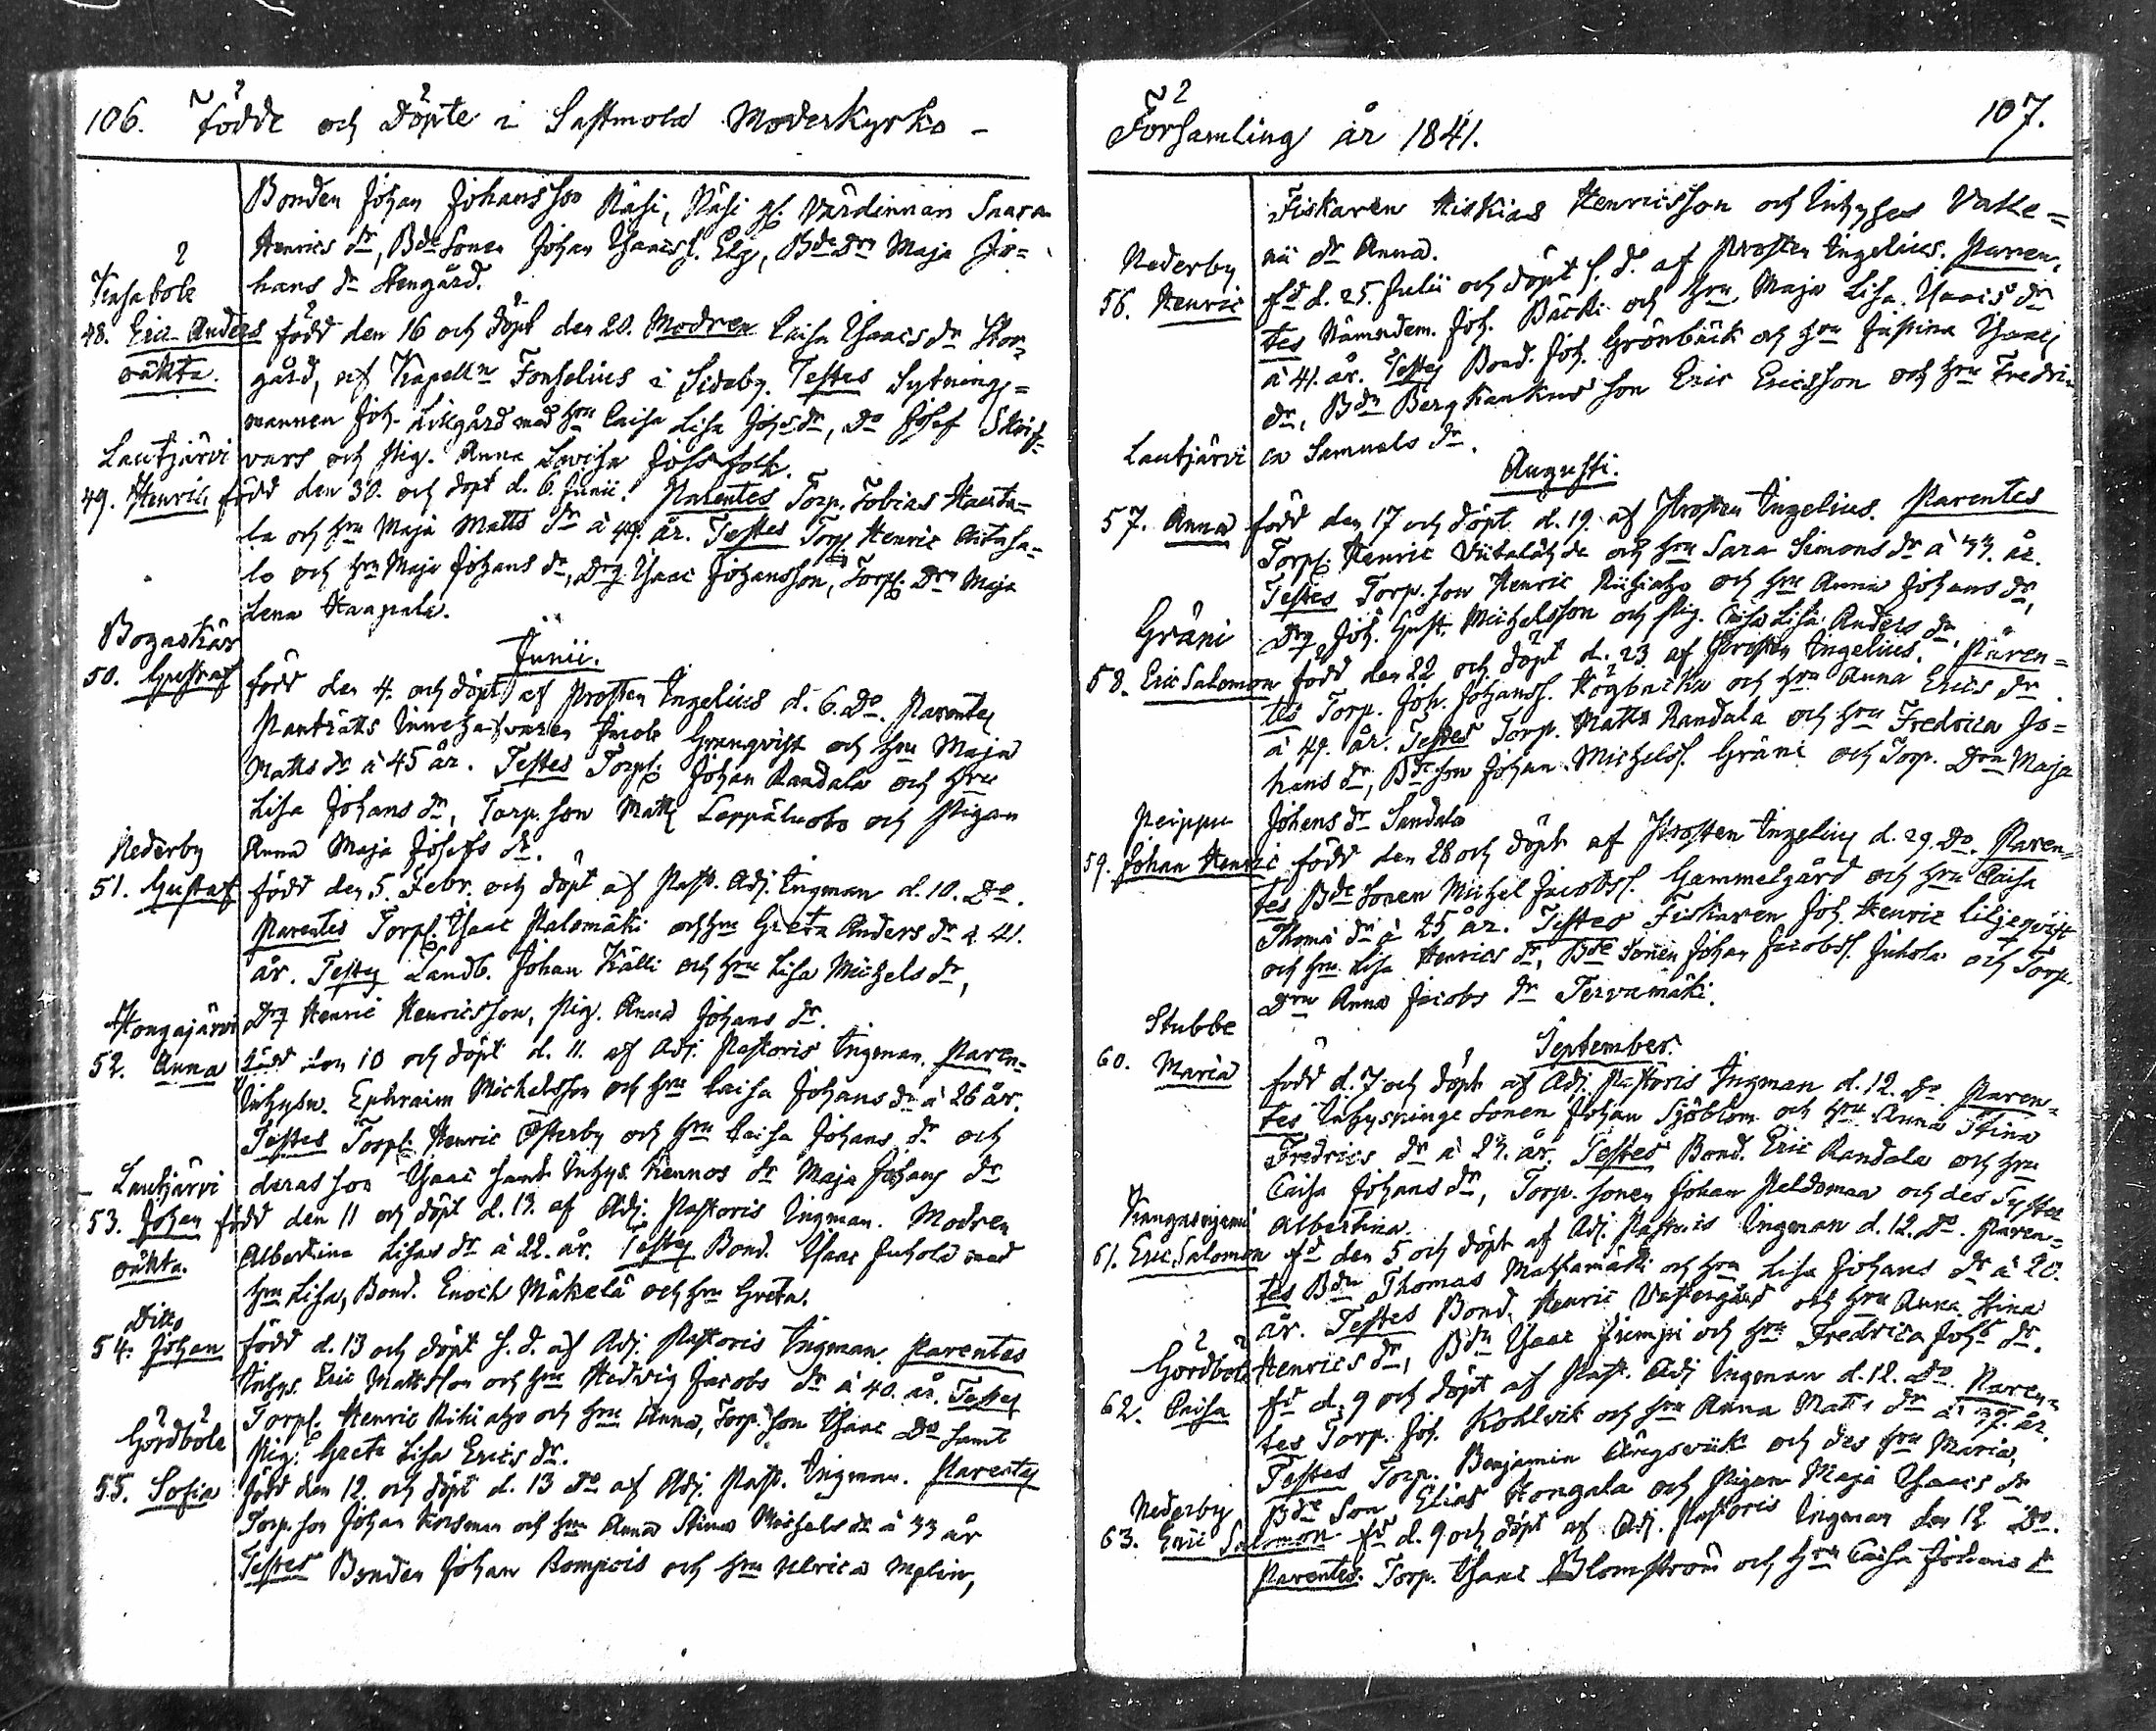 106. Födde och Döpte i Sastmola Moderkyrko -
Bonden Johan Johansson Näsi, Näsi gl. Värdinnan Saara
Henrics dr, Bde Sonen Johan Isaacss. Elg, Bde Drn Maja Jo=
hans dr Stengård.
Kasabole
48. Eric Anders född den 16 och döpt den 20. Modren Caisa Isaacs dr Stor
oäkta. gård, af Kapelln Fonselius i Sideby. Testes Sytnings=
mannen Joh. Lillgård med hru Caisa Lisa Johs dr, Do Josef
Lautjärvi vars och Pig. Anna Lovisa
49. Henric född den 30. och döpt d. 6. Junii. Parentes Torp. Tobias
la och hru Maja Matts dr à 49. år. Testes Torp. Henric
lo och hru Maja Johans dr, Drg Isaac Johansson, Torp. Drn Maja
Lena Haapala.
Bogaskär Junii.
50. Gustaf född den 4. och döpt af Prosten Ingelius d. 6. Do. Parentes
Inneha Jacob Granqvist och hru Maja
Matts dr à 45 år. Testes Torp. Johan Randala och hru
Lisa Johans dr, Torp. son Matts Leppäluoto och Pigan
Nederby Anna Maja Josefs dr.
51. Gustaf född den 5. Febr. och döpt af Past. Adj. Ingman d. 10. Do.
Parentes Torp. Isaac Palomäki och hru Greta Anders dr à 41.
år. Testes Landb. Johan Källi och hru Lisa Michels dr,
Hongajärvi Drg Henric Henricsson, Pig. Anna Johans dr.
52. Anna född den 10 och döpt d. 11. af Adj. Pastoris Ingman. Paren=
Inhysn. Ephraim Michelsson och hru Caisa Johans dr à 26 år.
Testes Torp. Henric Österby och hru Caisa Johans dr och
Lautjärvi deras son Isaac samt Inhys. dr Maja Johans dr
53. Johan född den 11 och döpt d. 13. af Adj. Pastoris Ingman. Modren
oäkta. Albertina Lisas dr à 22. år. Testes Bond. Isaac Juhola med
hru Lisa, Bond. Enoch Mäkelä och hru Greta.
Ditto
54. Johan född d. 13 och döpt s. d. af Adj. Pastoris Ingman. Parentes
Inhys. Eric Mattsson och hru Hedvig Jacobs dr à 40. år. Testes
Torp. Henric och hru Anna, Torp. son Isaac Do samt
Gördböle Pig. Greta Lisa Erics dr.
55. Sofia född den 12. och döpt d. 13 do af Adj. Past. Ingman. Parentes
Torp. son Johan Korsman och hru Anna Stina Michels dr à 33 år
Testes Bonden Johan Rompois och hru Ulrica Melin,
Församling år 1841. 107.
Fiskaren Hiskias Henricsson och Inhyses
Nederby dr Anna.
56. Henric fd d. 25. Julii och döpt s. d. af Prosten Ingelius. Paren=
tes Nämndem. Joh. Bäcki och hru Maja Lisa Isaacs dr
à 41. år. Testes Bond. Joh. Grönbäck och hru Isaacs
dr, Bdn Bergkankus son Eric Ericsson och hru Fredri
Lautjärvi ca Samuels dr.
Augusti.
57. Anna född den 17 och döpt d. 19. af Prosten Ingelius. Parentes
Torp. Henric och hru Sara Simons dr à 33. år.
Testes Torp. son Henric och hru Anna Johans dr,
Gräni Drg Joh. Gust. Michelsson och Pig. Caisa Lisa Anders dr.
58. Eric Salomon född den 22 och döpt d. 23. af Prosten Ingelius. Paren=
tes Torp. Joh. Johanss. Högbacka och hru Anna Erics dr.
à 49. år. Testes Torp. Matts Randala och hru Fredrica Jo=
hans dr, Bde son Johan Michelss. Gräni och Torp. Drn Maja
Peippu Johans dr Sandala
59. Johan Henric född den 28 och döpt af Prosten Ingelius d. 29. Do. Paren=
tes Bde Sonen Michel Jacobss. Gammelgård och hru Caisa
Thomæ dr à 25 år. Testes Fiskaren Joh. Henric Liljeqvist
och hru Lisa Henrics dr, Bde Sonen Johan Jacobss. Juhola och Torp.
Drn Anna Jacobs dr Tervamäki.
Stubbe September.
60. Maria född d. 7 och döpt af Adj. Pastoris Ingman d. 12. do. Paren=
tes Inhysninge Sonen Johan Sjöblom och hru Anna Stina
Fredrics dr à 23. år. Testes Bond. Eric Randala och hru
Caisa Johans dr, Torp. sonen Johan Peldomaa och des Syster
Albertina.
61. Eric Salomon fd den 5 och döpt af Adj. Pastoris Ingman d. 12. Do. Paren=
tes Bdn Thomas och hru Lisa Johans dr à 20.
år. Testes Bond. Henric och hru Anna Stina
Gördböle Henrics dr, Bdn Isaac och hru Fredrica Johs dr.
62. Caisa fd d. 9 och döpt af Past. Adj Ingman d. 12. Do. Paren=
tes Torp. Joh. Kohlvik och hru Anna Matts dr à 37. år.
Testes Torp. Benjamin Ängsvik och des hru Maria,
Nederby Bde Son Elias Hongala och Pigan Maja Isaacs dr
63. Eric Salomon fd d. 9 och döpt af Adj. Pastoris Ingman den 12 Do.
Parentes. Torp. Isaac Blomström och hru Caisa Johans dr